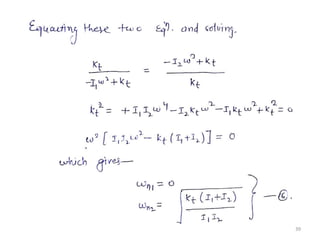 Equating these two Eqn. and solving.
kt / -I₁ω² + kt = -I₂ω² + kt / kt
kt² = + I₁I₂ω⁴ - I₂ktω² - I₁ktω² + kt² = 0
ω² [ I₁I₂ω² - kt (I₁+I₂) ] = 0
which gives—
ωn₁ = 0
ωn₂ = √ kt (I₁+I₂) / I₁I₂ } — ⑥.
39